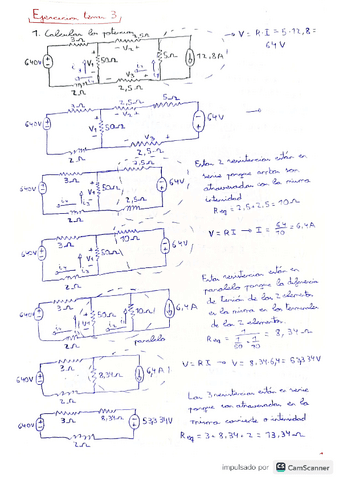 Ejercicios tema 3
1. Calcular las potencias
→ V = R·I = 5·12,8 =
64 V
3Ω
2,5Ω
640V
50Ω
5Ω
12,8A
2Ω
2,5Ω
3Ω
2,5Ω
5Ω
640V
50Ω
64V
2Ω
2,5Ω
Estas 2 resistencias están en
serie porque ambas son
atravesadas con la misma
intensidad
Req = 2,5+2,5 = 10Ω
3Ω
7,5Ω
640V
50Ω
64V
2Ω
2,5Ω
V = RI → I = 64/10 = 6,4A
3Ω
10Ω
640V
50Ω
64V
2Ω
Estas resistencias están en
paralelo porque la diferencia
de tensión de los 2 elementos
es la misma en los terminales
de los 2 elementos.
Req = 1/(1/50 + 1/10) = 8,34Ω
3Ω
640V
50Ω
10Ω
6,4A
2Ω
paralelo
V = RI → V = 8,34·6,4 = 53,334V
3Ω
640V
8,34Ω
6,4A
2Ω
Las 3 resistencias están en serie
porque son atravesadas en la
misma corriente o intensidad
Req = 3+8,34+2 = 13,34Ω
3Ω
8,34Ω
640V
53,334V
2Ω
impulsado por CS CamScanner